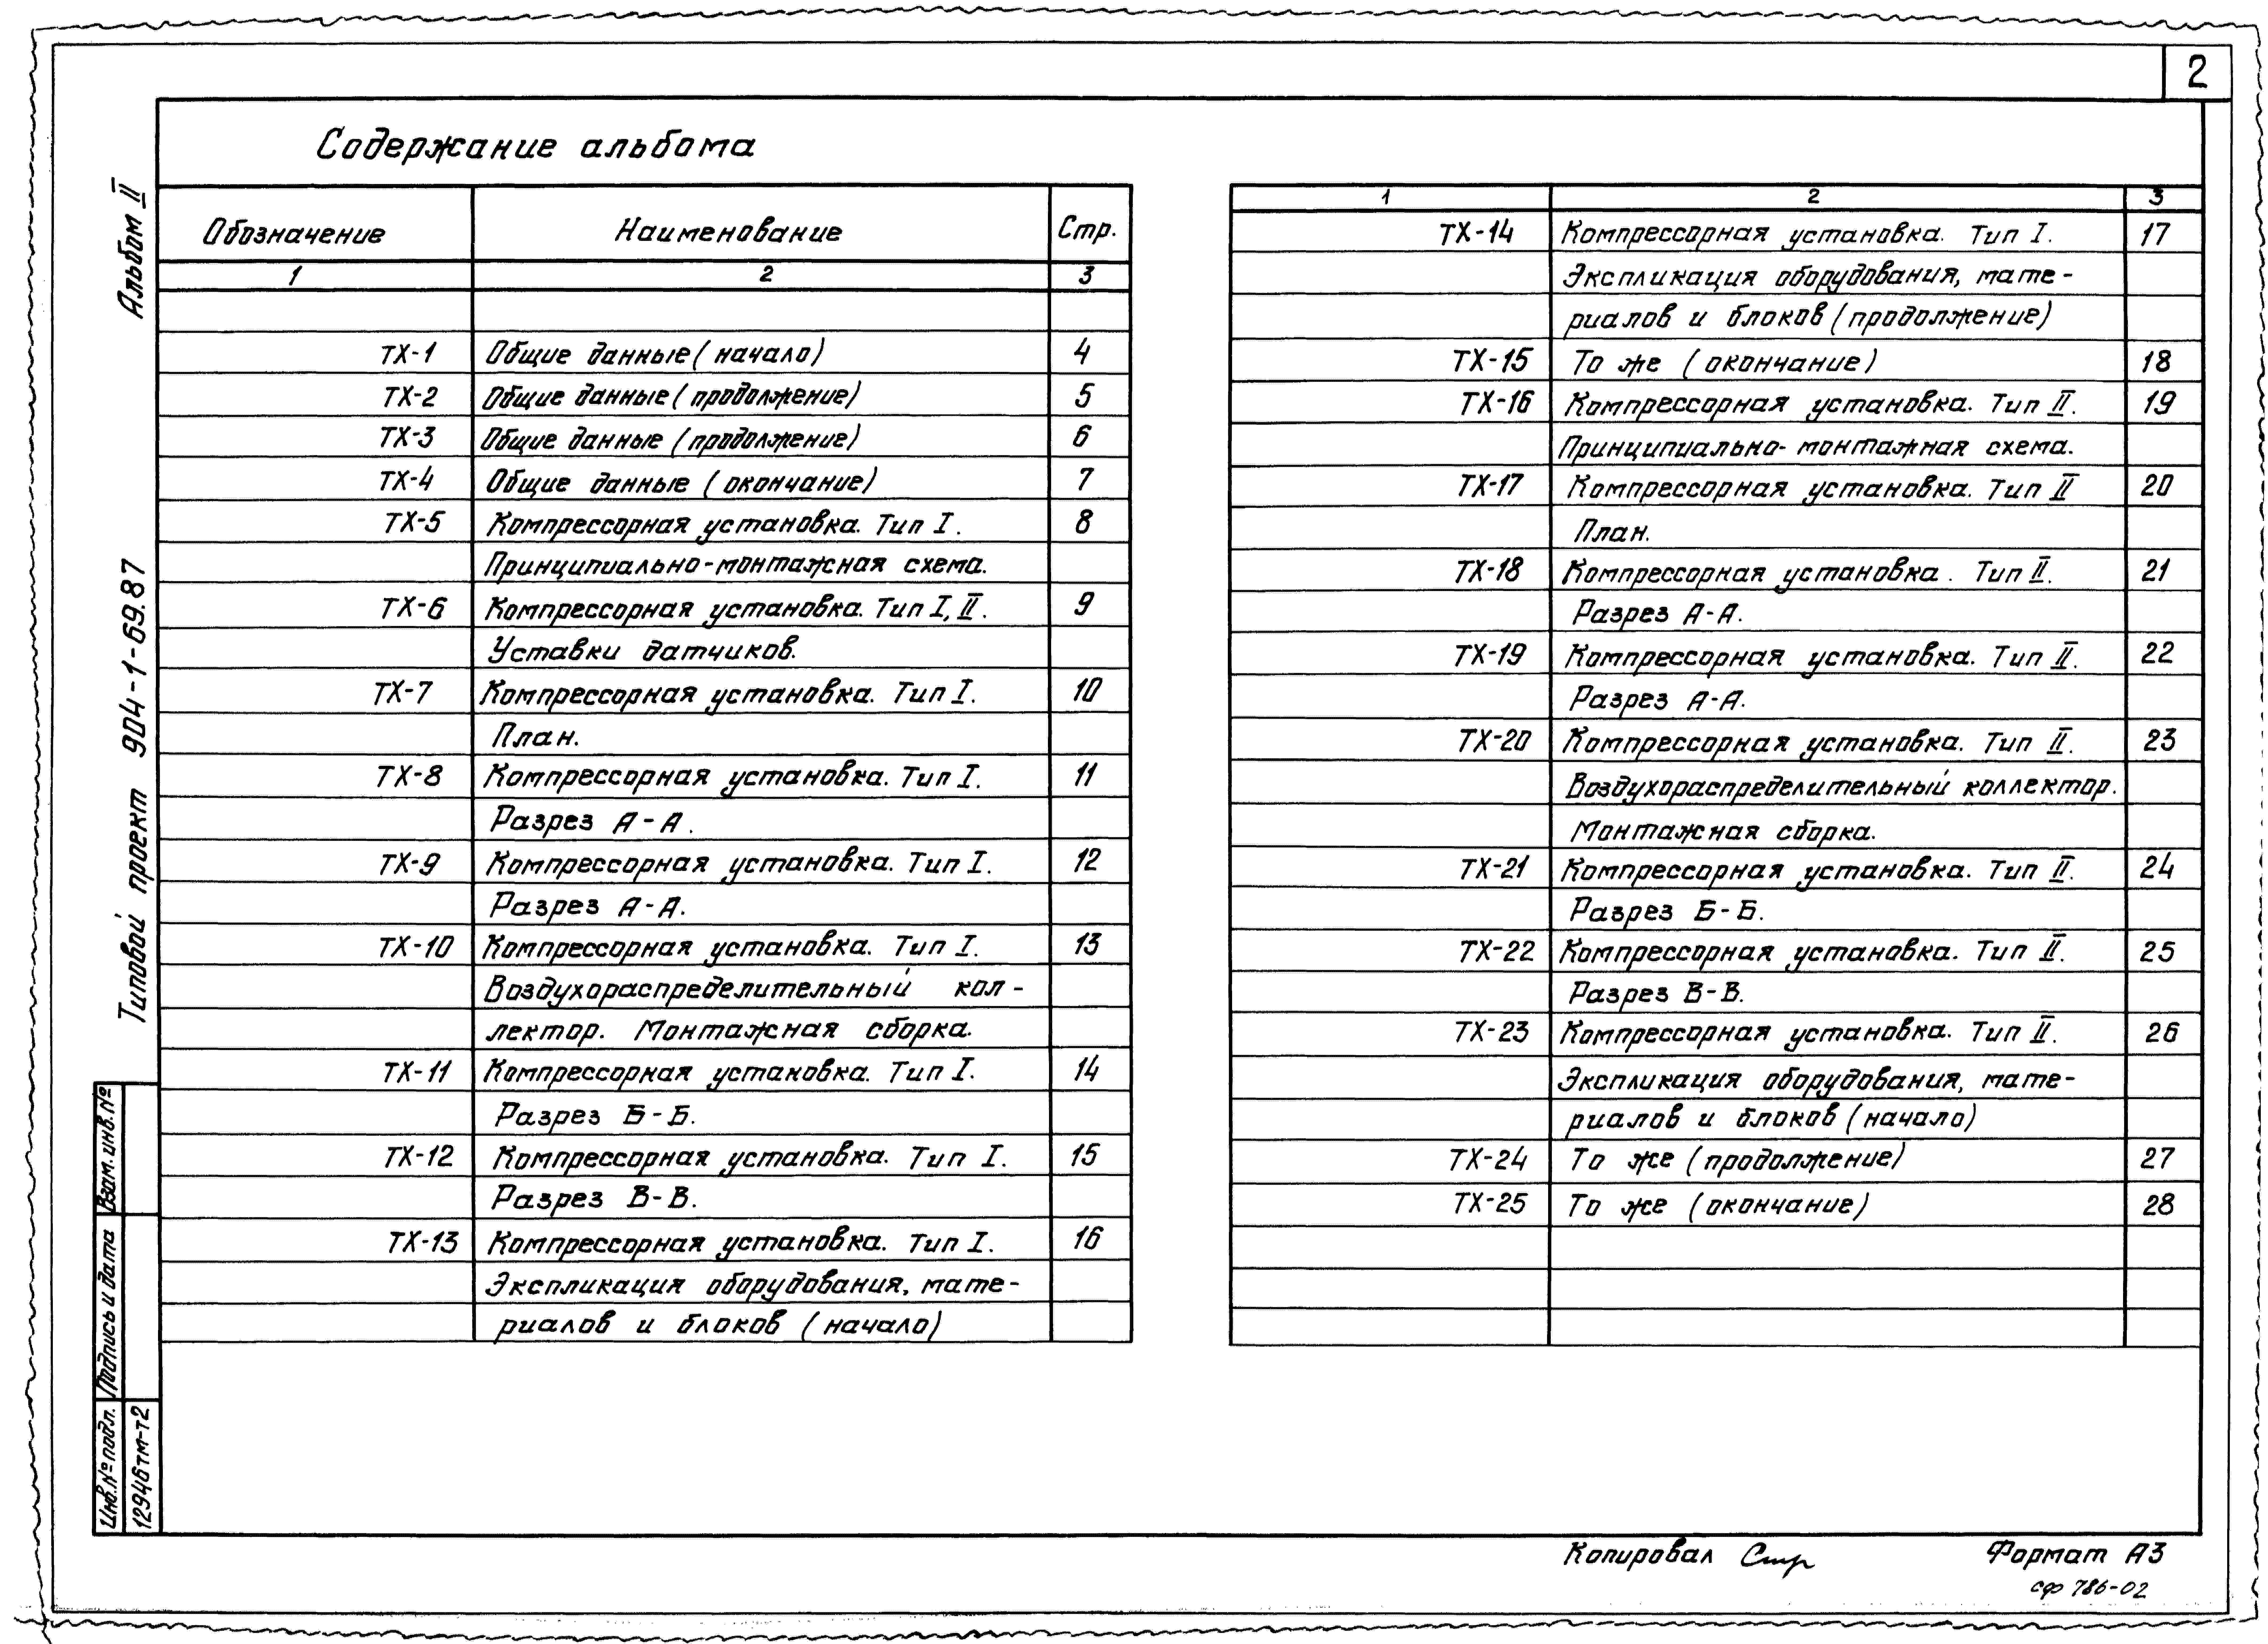 2
Содержание альбома
Альбом II
Типовой проект 904-1-69.87
Обозначение Наименование Стр.
1 2 3
ТХ-1 Общие данные (начало) 4
ТХ-2 Общие данные (продолжение) 5
ТХ-3 Общие данные (продолжение) 6
ТХ-4 Общие данные (окончание) 7
ТХ-5 Компрессорная установка. Тип I. 8
Принципиально-монтажная схема.
ТХ-6 Компрессорная установка. Тип I, II. 9
Уставки датчиков.
ТХ-7 Компрессорная установка. Тип I. 10
План.
ТХ-8 Компрессорная установка. Тип I. 11
Разрез А-А.
ТХ-9 Компрессорная установка. Тип I. 12
Разрез А-А.
ТХ-10 Компрессорная установка. Тип I. 13
Воздухораспределительный кол-
лектор. Монтажная сборка.
ТХ-11 Компрессорная установка. Тип I. 14
Разрез Б-Б.
ТХ-12 Компрессорная установка. Тип I. 15
Разрез В-В.
ТХ-13 Компрессорная установка. Тип I. 16
Экспликация оборудования, мате-
риалов и блоков (начало)
1 2 3
ТХ-14 Компрессорная установка. Тип I. 17
Экспликация оборудования, мате-
риалов и блоков (продолжение)
ТХ-15 То же (окончание) 18
ТХ-16 Компрессорная установка. Тип II. 19
Принципиально-монтажная схема.
ТХ-17 Компрессорная установка. Тип II 20
План.
ТХ-18 Компрессорная установка. Тип II. 21
Разрез А-А.
ТХ-19 Компрессорная установка. Тип II. 22
Разрез А-А.
ТХ-20 Компрессорная установка. Тип II. 23
Воздухораспределительный коллектор.
Монтажная сборка.
ТХ-21 Компрессорная установка. Тип II. 24
Разрез Б-Б.
ТХ-22 Компрессорная установка. Тип II. 25
Разрез В-В.
ТХ-23 Компрессорная установка. Тип II. 26
Экспликация оборудования, мате-
риалов и блоков (начало)
ТХ-24 То же (продолжение) 27
ТХ-25 То же (окончание) 28
Взам. инв. №
Подпись и дата
Инв. № подл.
12946тм-т2
Копировал
Формат А3
сф 786-02